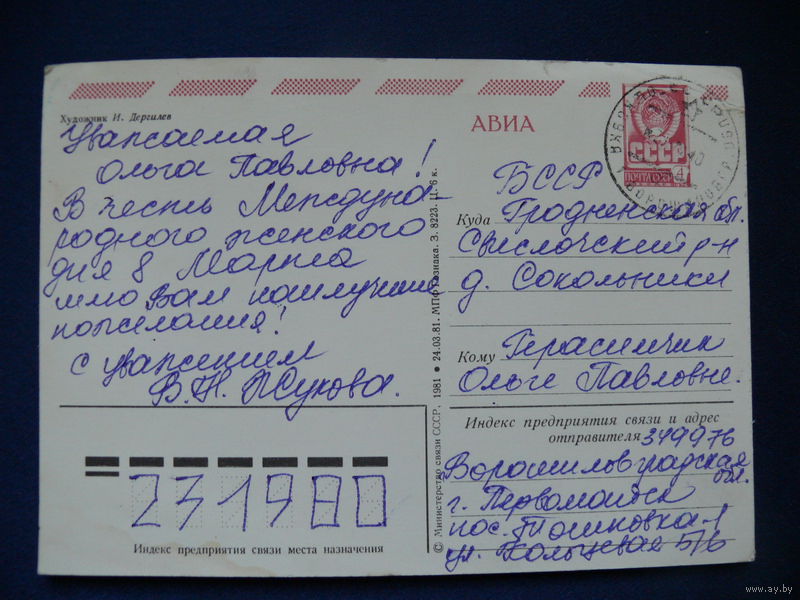 Художник И. Дергилев
Уважаемая
Ольга Павловна!
В честь Междуна-
родного женского
дня 8 Марта
шлю Вам наилучшие
пожелания!
С уважением
В. Н. Жукова.
Индекс предприятия связи места назначения
231980
© Министерство связи СССР. 1981 • 24.03.81. МПФ Гознака. З. 8223. Ц. 6 к.
АВИА
СССР
ПОЧТА
БССР
Куда Гродненская обл.
Свислочский р-н
д. Сокольники
Кому Герасимчик
Ольге Павловне.
Индекс предприятия связи и адрес
отправителя 349976
Ворошиловградская
обл.
г. Первомайск
пос. Тошковка-1
ул. Кольцевая 5/6
www.ay.by